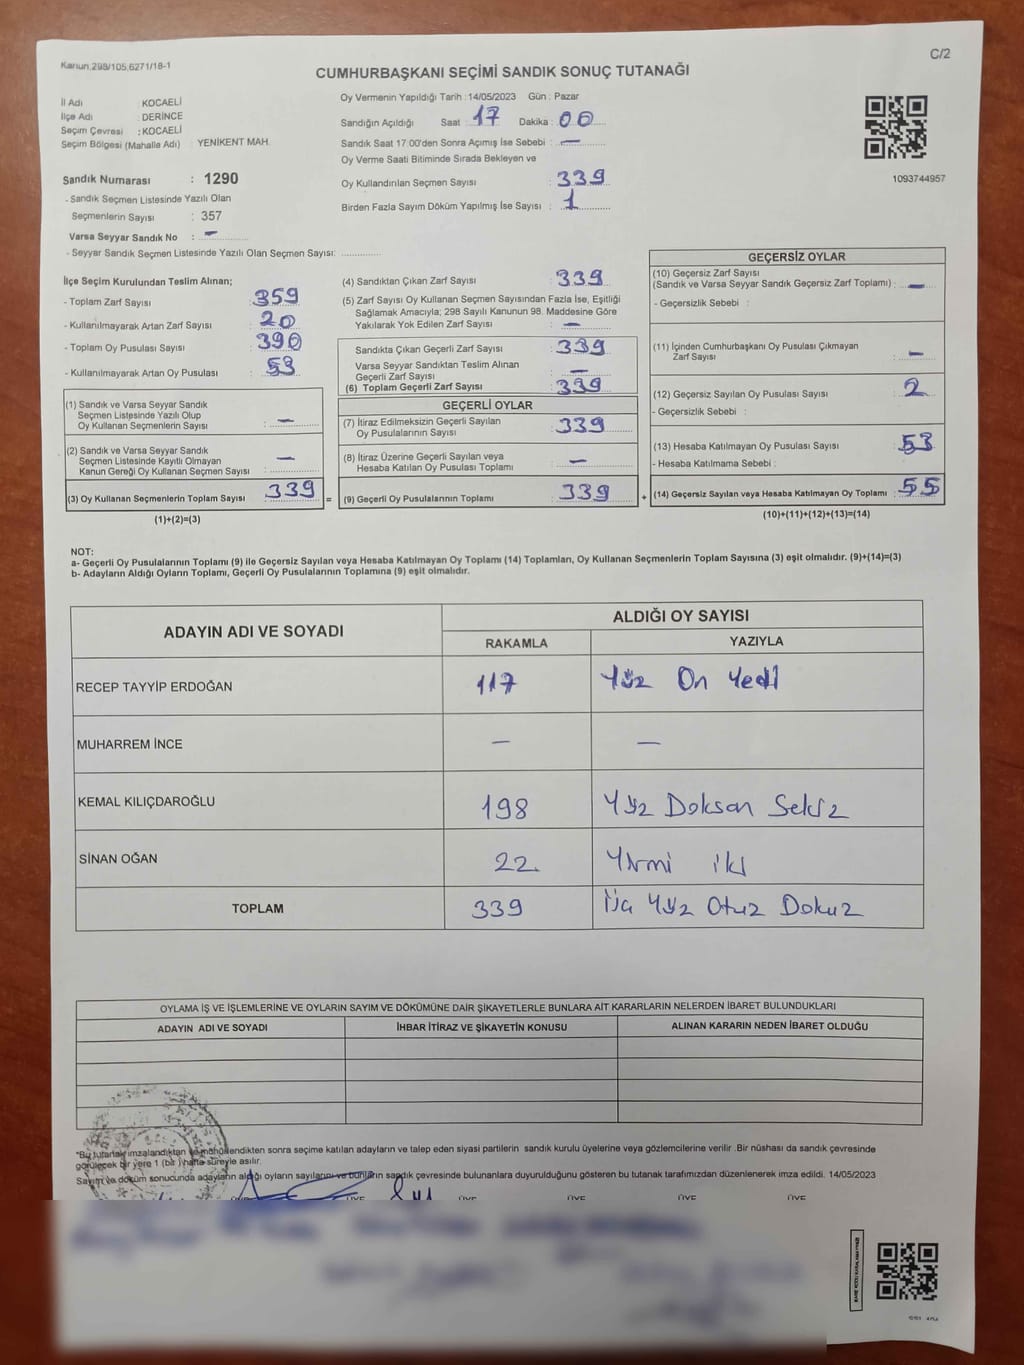 Kanun,298/105,6271/18-1
C/2
CUMHURBAŞKANI SEÇİMİ SANDIK SONUÇ TUTANAĞI
İl Adı : KOCAELİ
İlçe Adı : DERİNCE
Seçim Çevresi : KOCAELİ
Seçim Bölgesi (Mahalle Adı) : YENİKENT MAH.
Sandık Numarası : 1290
- Sandık Seçmen Listesinde Yazılı Olan
Seçmenlerin Sayısı : 357
Varsa Seyyar Sandık No : –
- Seyyar Sandık Seçmen Listesinde Yazılı Olan Seçmen Sayısı:
Oy Vermenin Yapıldığı Tarih :14/05/2023 Gün : Pazar
Sandığın Açıldığı Saat : 17 Dakika : 00
Sandık Saat 17.00'den Sonra Açımış İse Sebebi : —
Oy Verme Saati Bitiminde Sırada Bekleyen ve
Oy Kullandırılan Seçmen Sayısı : 339
Birden Fazla Sayım Döküm Yapılmış İse Sayısı : 1
1093744957
İlçe Seçim Kurulundan Teslim Alınan;
- Toplam Zarf Sayısı : 359
- Kullanılmayarak Artan Zarf Sayısı : 20
- Toplam Oy Pusulası Sayısı : 390
- Kullanılmayarak Artan Oy Pusulası : 53
(1) Sandık ve Varsa Seyyar Sandık
Seçmen Listesinde Yazılı Olup
Oy Kullanan Seçmenlerin Sayısı : –
(2) Sandık ve Varsa Seyyar Sandık
Seçmen Listesinde Kayıtlı Olmayan
Kanun Gereği Oy Kullanan Seçmen Sayısı : –
(3) Oy Kullanan Seçmenlerin Toplam Sayısı : 339
(1)+(2)=(3)
(4) Sandıktan Çıkan Zarf Sayısı : 339
(5) Zarf Sayısı Oy Kullanan Seçmen Sayısından Fazla İse, Eşitliği
Sağlamak Amacıyla; 298 Sayılı Kanunun 98. Maddesine Göre
Yakılarak Yok Edilen Zarf Sayısı : –
Sandıkta Çıkan Geçerli Zarf Sayısı : 339
Varsa Seyyar Sandıktan Teslim Alınan
Geçerli Zarf Sayısı : –
(6) Toplam Geçerli Zarf Sayısı : 339
GEÇERLİ OYLAR
(7) İtiraz Edilmeksizin Geçerli Sayılan
Oy Pusulalarının Sayısı : 339
(8) İtiraz Üzerine Geçerli Sayılan veya
Hesaba Katılan Oy Pusulası Toplamı : –
= (9) Geçerli Oy Pusulalarının Toplamı : 339
GEÇERSİZ OYLAR
(10) Geçersiz Zarf Sayısı
(Sandık ve Varsa Seyyar Sandık Geçersiz Zarf Toplamı) : –
- Geçersizlik Sebebi :
(11) İçinden Cumhurbaşkanı Oy Pusulası Çıkmayan
Zarf Sayısı : –
(12) Geçersiz Sayılan Oy Pusulası Sayısı : 2
- Geçersizlik Sebebi :
(13) Hesaba Katılmayan Oy Pusulası Sayısı : 53
- Hesaba Katılmama Sebebi :
+ (14) Geçersiz Sayılan veya Hesaba Katılmayan Oy Toplamı : 55
(10)+(11)+(12)+(13)=(14)
NOT:
a- Geçerli Oy Pusulalarının Toplamı (9) ile Geçersiz Sayılan veya Hesaba Katılmayan Oy Toplamı (14) Toplamları, Oy Kullanan Seçmenlerin Toplam Sayısına (3) eşit olmalıdır. (9)+(14)=(3)
b- Adayların Aldığı Oyların Toplamı, Geçerli Oy Pusulalarının Toplamına (9) eşit olmalıdır.
ADAYIN ADI VE SOYADI
ALDIĞI OY SAYISI
RAKAMLA YAZIYLA
RECEP TAYYİP ERDOĞAN 117 Yüz On Yedi
MUHARREM İNCE — —
KEMAL KILIÇDAROĞLU 198 Yüz Doksan Sekiz
SİNAN OĞAN 22. Yirmi iki
TOPLAM 339 Üç Yüz Otuz Dokuz
OYLAMA İŞ VE İŞLEMLERİNE VE OYLARIN SAYIM VE DÖKÜMÜNE DAİR ŞİKAYETLERLE BUNLARA AİT KARARLARIN NELERDEN İBARET BULUNDUKLARI
ADAYIN ADI VE SOYADI İHBAR İTİRAZ VE ŞİKAYETİN KONUSU ALINAN KARARIN NEDEN İBARET OLDUĞU
"Bu tutanak imzalandıktan ve mühürlendikten sonra seçime katılan adayların ve talep eden siyasi partilerin sandık kurulu üyelerine veya gözlemcilerine verilir .Bir nüshası da sandık çevresinde
görülecek bir yere 1 (bir) hafta süreyle asılır.
Sayım ve döküm sonucunda adayların aldığı oyların sayılarını ve bunların sandık çevresinde bulunanlara duyurulduğunu gösteren bu tutanak tarafımızdan düzenlenerek imza edildi. 14/05/2023
ÜYE ÜYE ÜYE ÜYE ÜYE